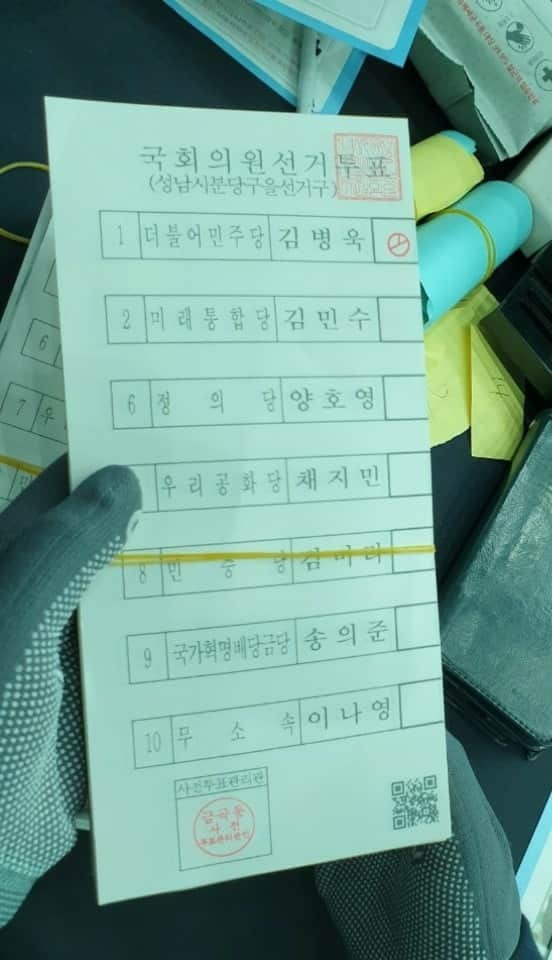 국회의원선거투표
(성남시분당구을선거구)
1 더불어민주당 김병욱
2 미래통합당 김민수
6 정의당 양호영
우리공화당 채지민
8 민중당 김미라
9 국가혁명배당금당 송의준
10 무소속 이나영
사전투표관리관
금곡동
사전
투표관리관인
6
7 우